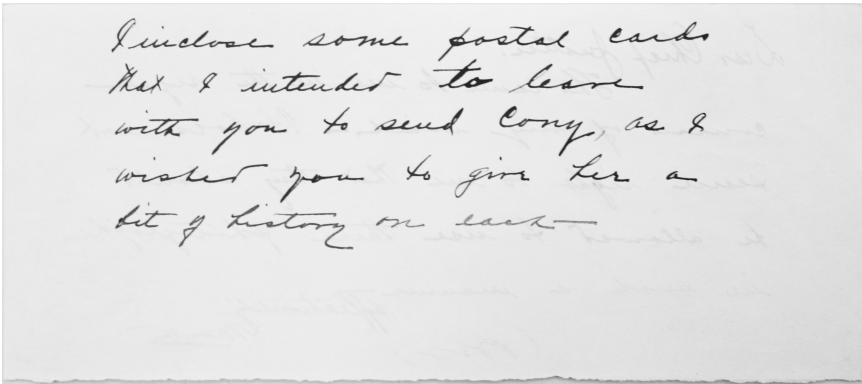 I inclose some postal cards
that I intended to leave
with you to send Cony, as I
wished you to give her a
bit of history on each